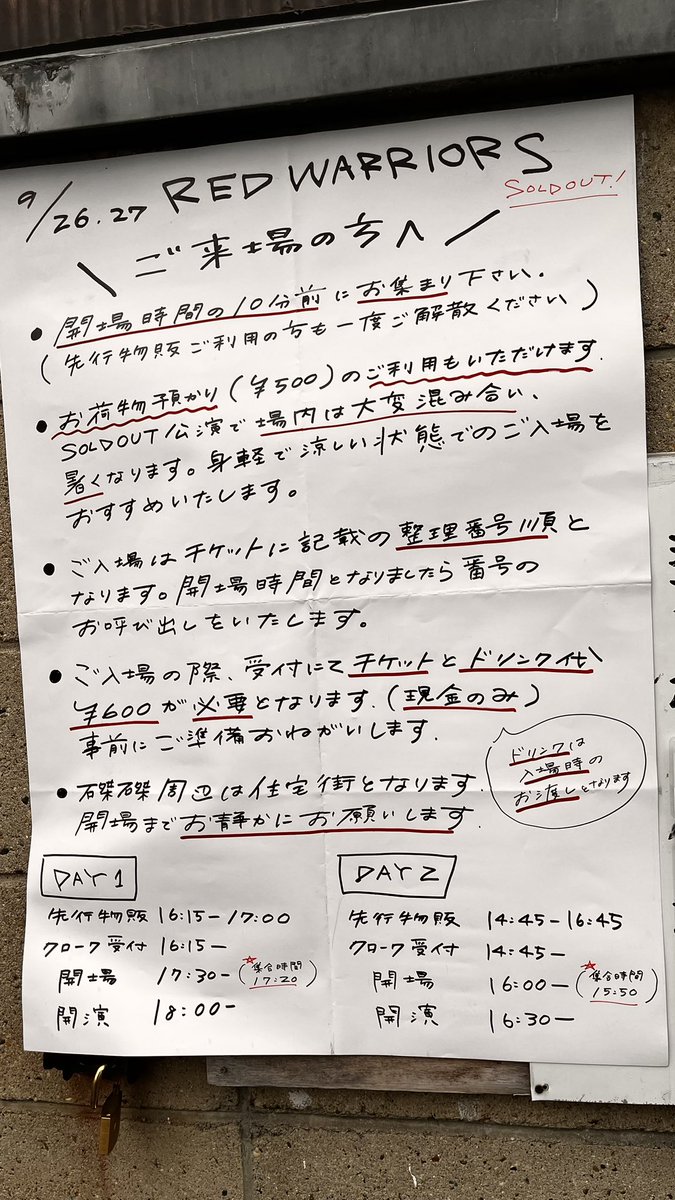 9/26.27 RED WARRIORS
SOLDOUT!
＼ご来場の方へ／
● 開場時間の10分前にお集まり下さい.
(先行物販ご利用の方も一度ご解散ください)
● お荷物預かり(¥500)のご利用もいただけます.
SOLDOUT公演で場内は大変混み合い、
暑くなります。身軽で涼しい状態でのご入場を
おすすめいたします。
● ご入場はチケットに記載の整理番号順と
なります。開場時間となりましたら番号の
お呼び出しをいたします。
● ご入場の際、受付にてチケットとドリンク代
¥600が必要となります.(現金のみ)
事前にご準備おねがいします.
ドリンクは
入場時の
お渡しとなります
● 磔磔周辺は住宅街となります.
開場までお静かにお願いします.
DAY1
先行物販 16:15-17:00
クローク受付 16:15-
開場 17:30-(☆集合時間 17:20)
開演 18:00-
DAY2
先行物販 14:45-16:45
クローク受付 14:45-
開場 16:00-(☆集合時間 15:50)
開演 16:30-